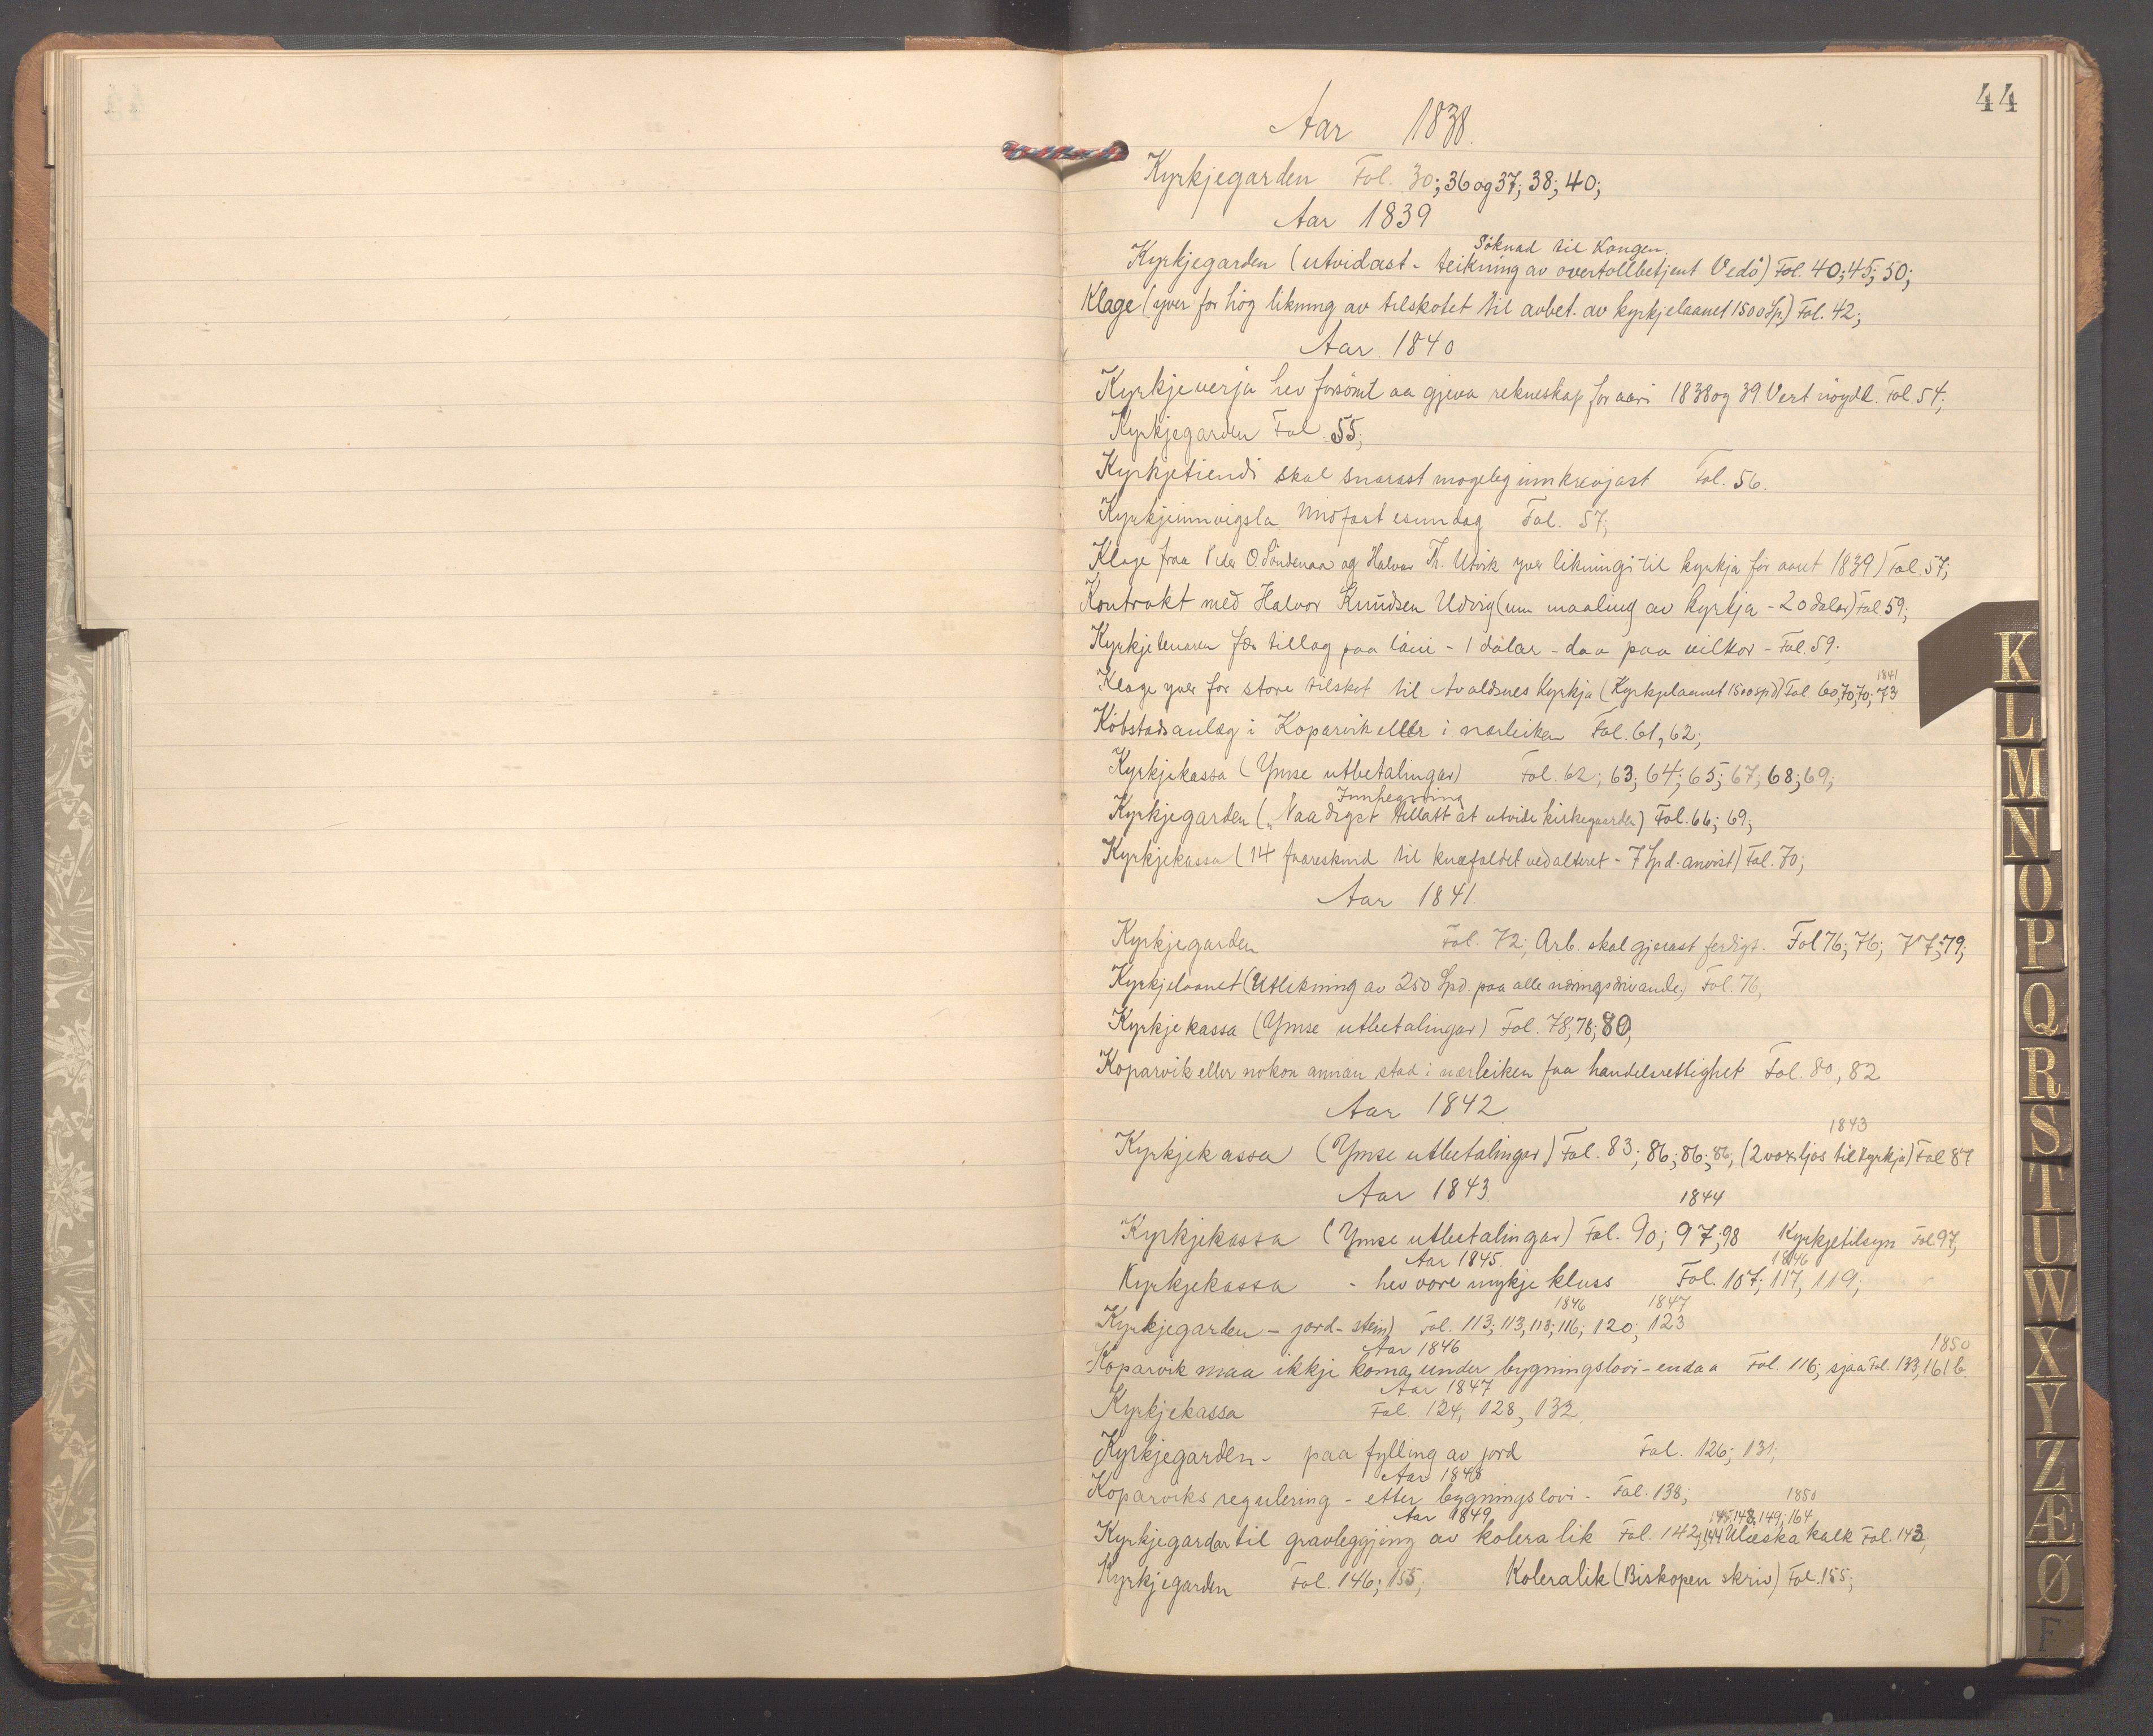 44
Aar 1838.
Kyrkjegarden Fol. 30; 36 og 37; 38; 40;
Aar 1839
Söknad til Kongen
Kyrkjegarden (utvidast - teikning av overtollbetjent Vedö) Fol. 40; 45; 50;
Klage (yver for hög likning av tilskotet til avbet. av kyrkjelaanet 1500 Sp.) Fol. 42;
Aar 1840
Kyrkjeverja hev forsömt aa gjeva rekneskap for aari 1838 og 39. Vert nöydd. Fol. 54;
Kyrkjegarden Fol. 55;
Kyrkjetiendi skal snarast mogeleg innkrevjast Fol. 56.
Kyrkjeinnvigsla Midfastesundag Fol. 57;
Klage fraa Peder O. Söndenaa og Halvor Th. Utvik yver likningi til kyrkja for aaret 1839) Fol. 57;
Kontrakt med Halvor Knudsen Udvig (um maaling av kyrkja - 20 dalar) Fol 59;
Kyrkjetenaren fær tillag paa löni - 1 dalar - daa paa vilkor - Fol. 59;
1841
Klage yver for store tilskot til Avaldsnes Kyrkja (Kyrkjelaanet 1500 spd) Fol 60, 70, 70; 73
Köbstadsanlæg i Koparvik eller i nærleiken Fol. 61, 62;
Kyrkjekassa (Ymse utbetalingar) Fol. 62; 63; 64; 65; 67; 68; 69;
Innhegning
Kyrkjegarden („Naadigst tillatt at utvide kirkegaarden) Fol. 66; 69;
Kyrkjekassa (14 faareskind til knæfaldet ved alteret - 7 Spd. anvist) Fol. 70;
Aar 1841.
Kyrkjegarden Fol. 72; Arb. skal gjerast ferdigt. Fol 76; 76; 77; 79;
Kyrkjelaanet (Utlikning av 250 Spd. paa alle næringsdrivande) Fol. 76,
Kyrkjekassa (Ymse utbetalingar) Fol. 78; 78; 80;
Koparvik eller nokon annan stad i nærleiken faa handelsrettighet Fol. 80, 82
Aar 1842
1843
Kyrkjekassa (Ymse utbetalingar) Fol. 83; 86; 86; 86, (2 voxljos til Kyrkja) Fol 87
Aar 1843.
1844
Kyrkjekassa (Ymse utbetalingar) Fol. 90; 97; 98 Kyrkjetilsyn Fol. 97;
Aar 1845. 1846
Kyrkjekassa - hev vore mykje kluss Fol. 107; 117, 119;
1846 1847
Kyrkjegarden - jord - stein) Fol. 113; 113, 113; 116; 120; 123
Aar 1846 1850
Koparvik maa ikkje koma under bygningslovi - endaa Fol. 116; sjaa Fol. 133, 161 b.
Aar 1847
Kyrkjekassa Fol. 124; 128, 132
Kyrkjegarden - paa fylling av jord Fol. 126; 131;
Aar 1848
Koparviks regulering - etter bygningslovi - Fol. 138;
Aar 1849 1850
145, 148, 149; 164
Kyrkjegardar til gravleggjing av kolera lik Fol. 142, 144 Ulæska kalk Fol. 143,
Kyrkjegarden Fol. 146; 155; Koleralik (Biskopen skriv) Fol. 155;
K
L
M
N
O
P
Q
R
S
T
U
W
X
Y
Z
Æ
Ø
F